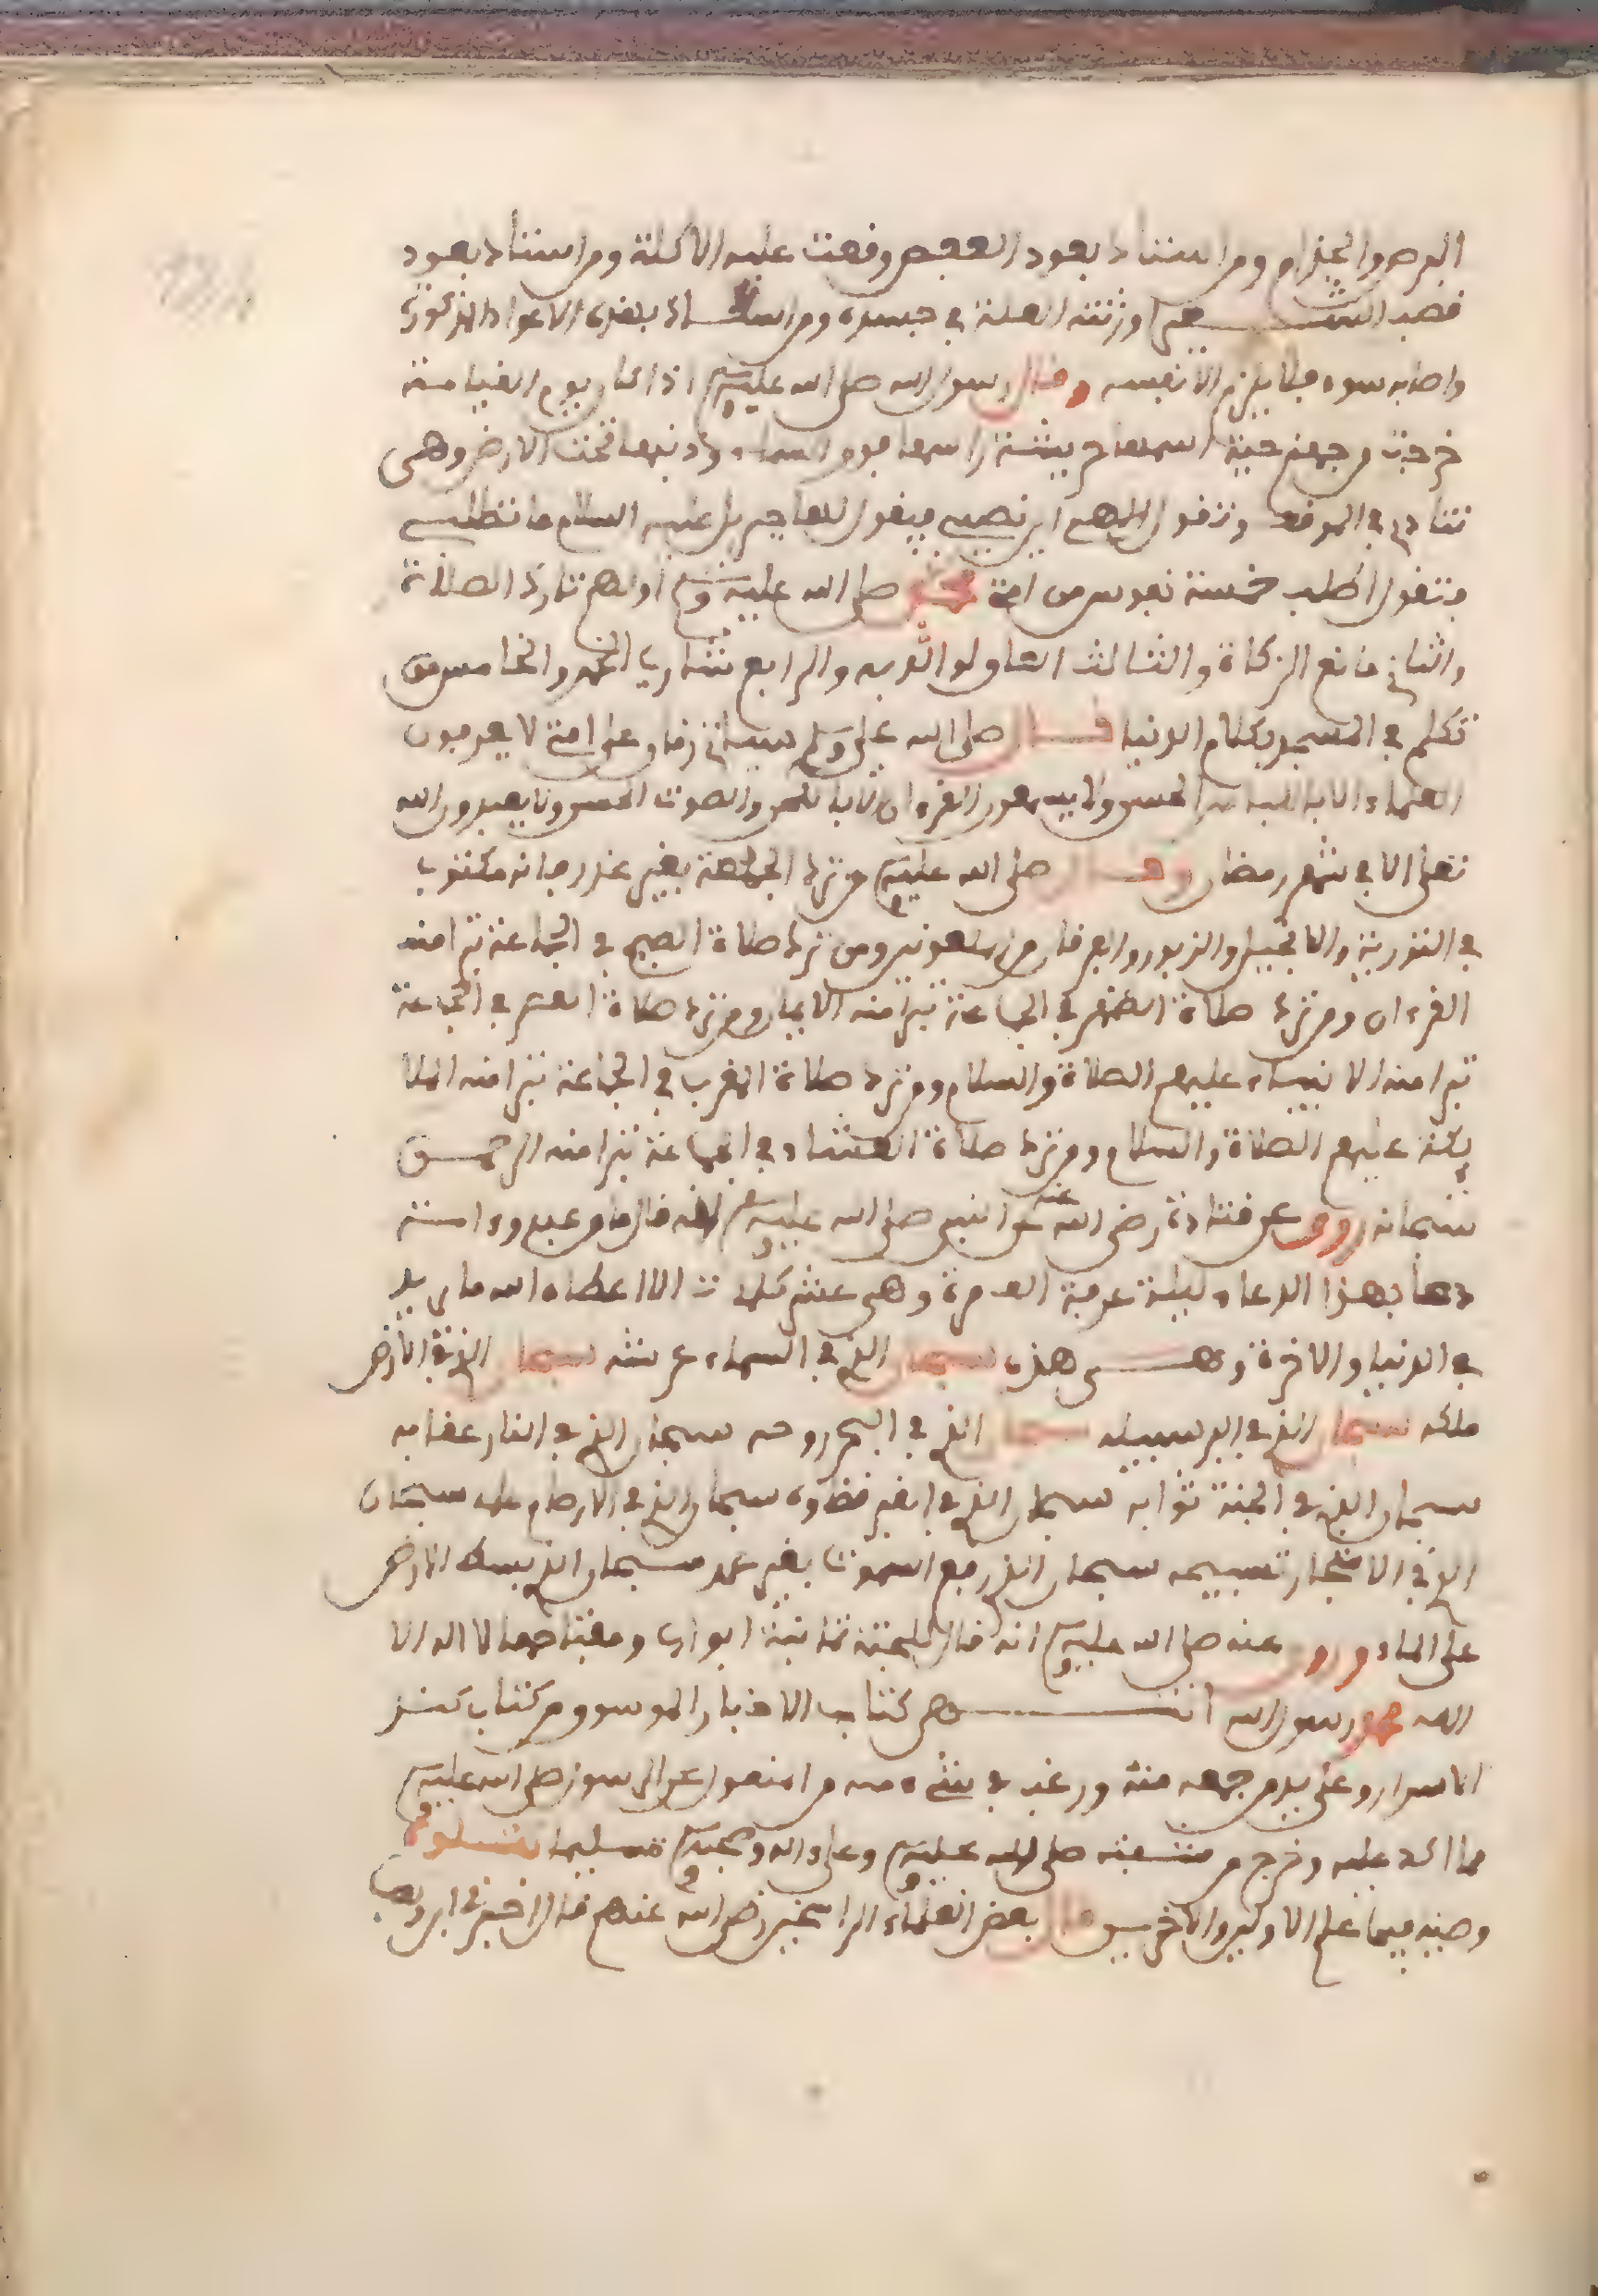 البرص والجذام ومن استاك بعود العفص وقعت عليه الاكلة ومن استاك بعود
قصب الشعير اورثته العلة في جسده ومن استاك بهذه الاعواد المذكورة
واصابه سوء فلا يلوم الا نفسه وقال رسول الله صلى الله عليه وسلم اذا كان يوم القيامة
خرجت من جهنم حية اسمها حريشة راسها فوق السماء وذنبها تحت الارض وهي
تنادي في الموقف وتقول اللهم اين نصيبي فيقول لها جبريل عليه السلام ما تطلبي
فتقول اطلب خمسة نفوس من امة محمد صلى الله عليه وسلم اولهم تارك الصلاة
والثاني مانع الزكاة والثالث العاق لوالديه والرابع شارب الخمر والخامس من
تكلم في المسجد بكلام الدنيا قال صلى الله عليه وسلم سياتي زمان على امتي لا يعرفون
العلماء الا باللباس الحسن ولا يسمعون القرءان الا بالصوت الحسن ولا يعبدون الله
تعلى الا في شهر رمضان وقال صلى الله عليه وسلم من ترك الجمعة بغير عذر فانه مكتوب
في التورية والانجيل والزبور والفرقان من الملعونين ومن ترك صلاة الصبح في الجماعة تبرا منه
القرءان ومن ترك صلاة الظهر في الجماعة تبرا منه الايمان ومن ترك صلاة العصر في الجماعة
تبرا منه الانبياء عليهم الصلاة والسلام ومن ترك صلاة المغرب في الجماعة تبرا منه الملا
يكة عليهم الصلاة والسلام ومن ترك صلاة العشاء في الجماعة تبرا منه الرحمن
سبحانه روي عن قتادة رضي الله عنه عن النبي صلى الله عليه وسلم انه قال ما من عبد وامة
دعا بهذا الدعاء ليلة عرفة الف مرة وهي عشر كلمات الا اعطاه الله ما يريد
في الدنيا والاخرة وهي هذه سبحان الذي في السماء عرشه سبحان الذي في الارض
ملكه سبحان الذي في البر سبيله سبحان الذي في البحر روحه سبحان الذي في النار عقابه
سبحان الذي في الجنة ثوابه سبحان الذي في القبر قضاؤه سبحان الذي في الارحام علمه سبحان
الذي في الاشجار تسبيحه سبحان الذي رفع السموات بغير عمد سبحان الذي بسط الارض
على الماء وروي عنه صلى الله عليه وسلم انه قال للجنة ثمانية ابواب ومفتاحها لا اله الا
الله محمد رسول الله انتهى من كتاب الاخبار من كتاب كنز
الاسرار وعلى يد من جمعه منه ورغب في شيء منه عن الرسول صلى الله عليه
مما اكد عليه وخرج من شفته صلى الله عليه وسلم وعلى ءاله وصحبه وسلم تسليما
وصيه فيما علم الاولين والاخرين قال بعض العلماء الراسخين رضي الله عنهم قال اخبرني